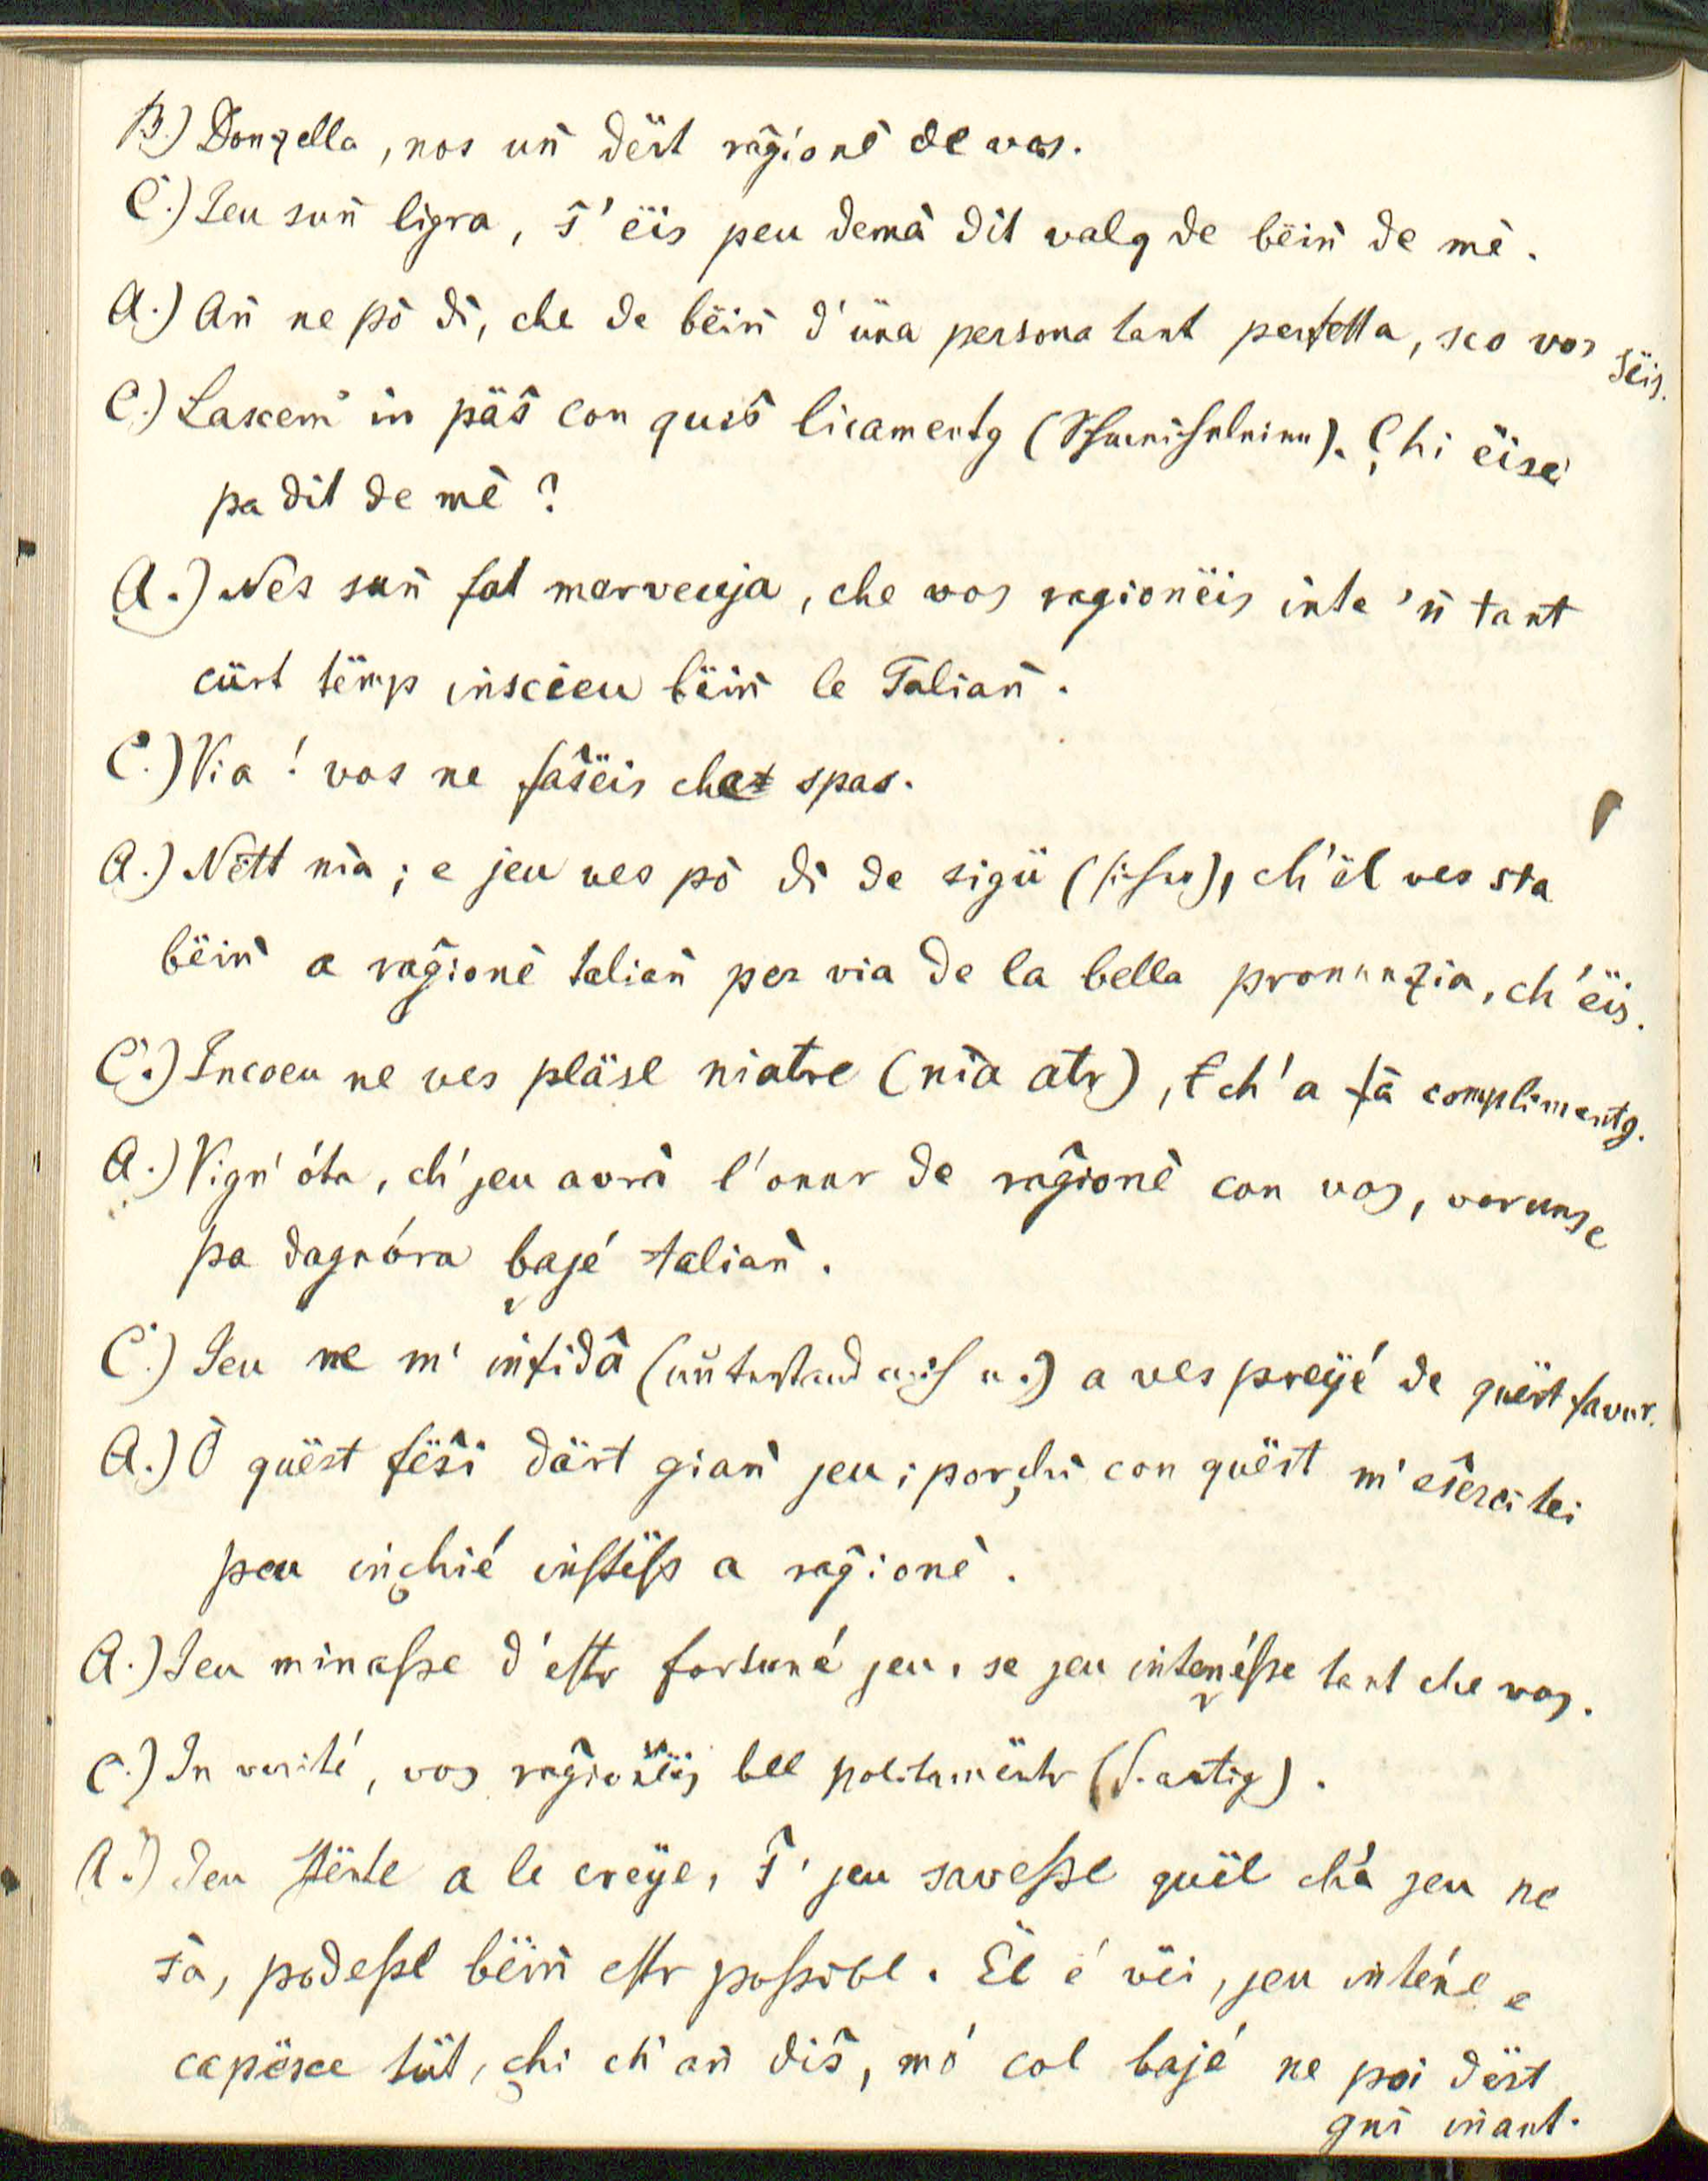 B.) Donzella, nos uñ dërt rag̑ionè de vos.
C.) Jeu suñ ligra, s̑'ëis peu demà dit valg de bëiñ de mè.
A.) Añ ne pò dì, che de bëiñ d'üna persona tant perfetta, sco vos sëis.
C.) Lascem' in päs̑ con quis̑ licamentg. Chi ëise
pa dit de mè?
A.) Nès suñ fat marveuja, che vos ragionëis inte 'ñ tant
cürt tëmp inscieu bëiñ le Taliañ.
C.) Via! vos ne fas̑ëis che spas.
A.) Nëtt nia; e jeu ves pò dì de sigü, ch'ël ves sta
bëiñ a rag̑ionè taliañ per via de la bella pronunzia, ch'ëis.
C.) Incoeu ne ves pläse niatre (nia atr), ch'a fà complimentg.
A.) Vign' óta, ch' jeu avrà l'onur de rag̑ionè con vos, vorunse
pa dagnóra bajé taliañ.
C.) Jeu ne m' infidà a ves preÿé de quëst favur.
A.) Ò quëst fës̑i därt giañ jeu; porchi con quëst m'es̑ercitei
peu inchié instëss a rag̑ionè.
A.) Jeu minasse d'estr fortuné jeu, se jeu intenésse tant che vos.
C.) In verité, vos rag̑ionëis bel politamëntr.
A.) Jeu stënte a le creÿe, s̑' jeu savesse quël ch'à jeu ne
sà, podesse bëiñ estr possibl. Ël é vëi, jeu inténe e
capësce tüt, chi ch' añ dis̑, mó col bajé ne poi dërt
gnì iñant.